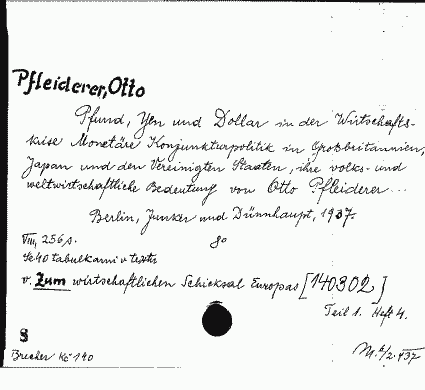 Pfleiderer, Otto
Pfund, Yen und Dollar in der Wirtschafts-
krise Monetäre Konjunkturpolitik in Großbritannien,
Japan und den Vereinigten Staaten, ihre volks- und
weltwirtschaftliche Bedeutung von Otto Pfleiderer...
Berlin, Junker und Dünnhaupt, 1937.
VIII, 256 s. 8°
Se 40 tabulkami v textu
v. Zum wirtschaftlichen Schicksal Europas [140302]
Teil 1. Heft 4.
S
Brecher Kč 140